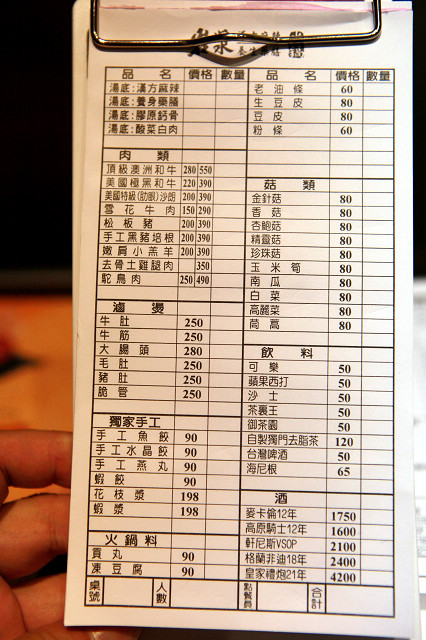 品 名 價格 數量
湯底:漢方麻辣
湯底:養身藥膳
湯底:膠原鈣骨
湯底:酸菜白肉
肉 類
頂級澳洲和牛 280 550
美國極黑和牛 220 390
美國特級(肋眼)沙朗 200 390
雪花牛肉 150 290
松板豬 200 390
手工黑豬培根 200 390
嫩肩小羔羊 200 390
去骨土雞腿肉 350
鴕鳥肉 250 490
滷 燙
牛肚 250
牛筋 250
大腸頭 280
毛肚 250
豬肚 250
脆管 250
獨家手工
手工魚餃 90
手工水晶餃 90
手工燕丸 90
蝦餃 90
花枝漿 198
蝦漿 198
火鍋料
貢丸 90
凍豆腐 90
桌號 人數
品 名 價格 數量
老油條 60
生豆皮 80
豆皮 80
粉條 60
菇 類
金針菇 80
香菇 80
杏鮑菇 80
精靈菇 80
珍珠菇 80
玉米筍 80
南瓜 80
白菜 80
高麗菜 80
茼蒿 80
飲 料
可樂 50
蘋果西打 50
沙士 50
茶裏王 50
御茶園 50
自製獨門去脂茶 120
台灣啤酒 50
海尼根 65
酒
麥卡倫12年 1750
高原騎士12年 1600
軒尼斯VSOP 2100
格蘭菲迪18年 2400
皇家禮炮21年 4200
點餐員 合計